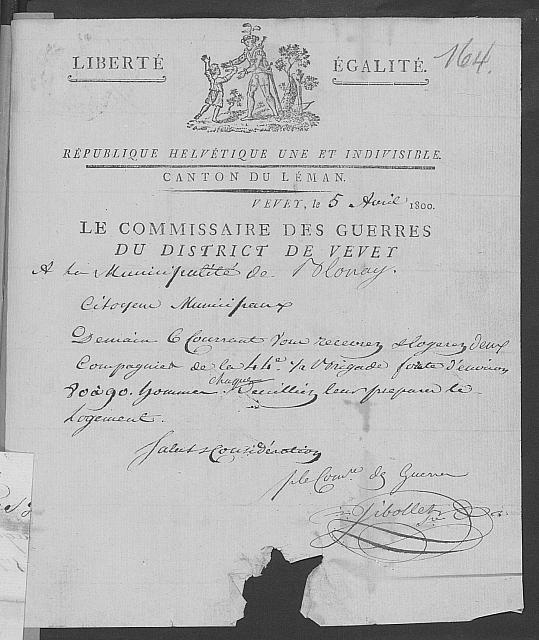 164.
LIBERTÉ ÉGALITÉ.
RÉPUBLIQUE HELVÉTIQUE UNE ET INDIVISIBLE.
CANTON DU LÉMAN.
VEVEY, le 5 Avril 1800.
LE COMMISSAIRE DES GUERRES
DU DISTRICT DE VEVEY
A la Municipalité de Blonay.
Citoyens Municipaux
Demain 6 Courrant vous recevrez & logerez deux
Compagnies de la 44e. ½ Brigade forte d'environ
80 à 90. hommes chaque Veuilliez leur preparer le
Logement.
Salut & Considération
ple Comre de Guerre